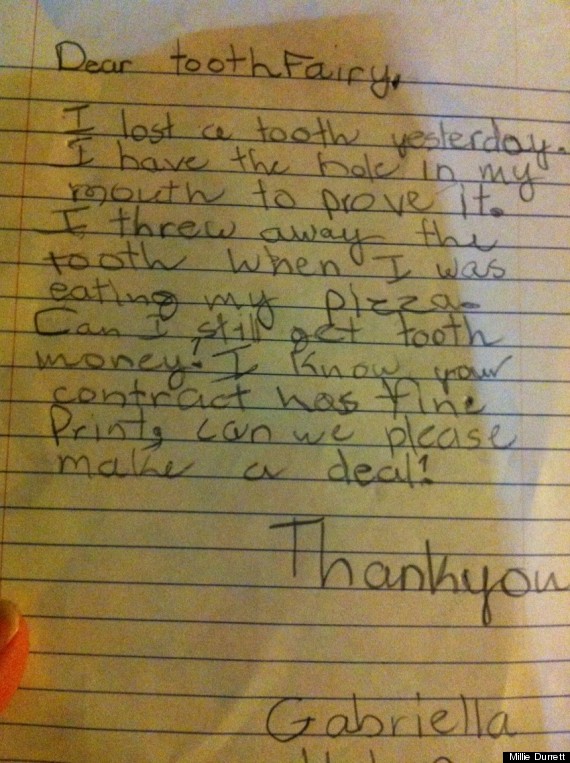 Dear toothFairy.
I lost a tooth yesterday.
I have the hole in my
mouth to prove it.
I threw away the
tooth when I was
eating my pizza.
Can I still get tooth
money? I know your
contract has fine
Print, can we please
make a deal?
Thankyou
Gabriella
Millie Durrett